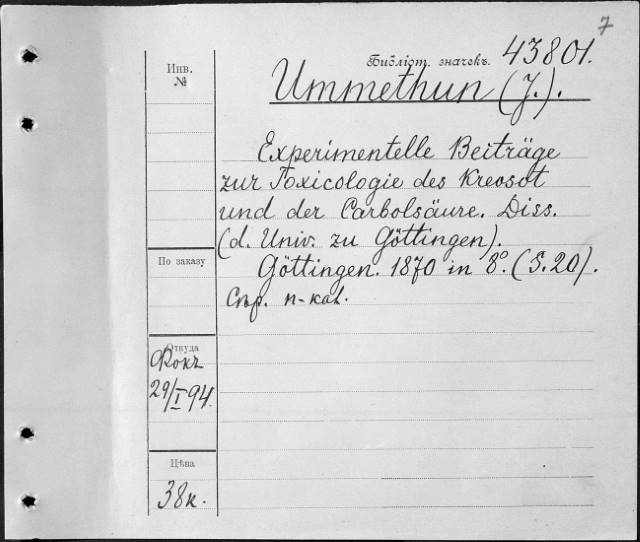 7
Библіот. значекъ. 43801.
Инв. №
Ummethun (J.).
Experimentelle Beiträge
zur Toxicologie des Kreosot
und der Carbolsäure. Diss.
(d. Univ. zu Göttingen).
По заказу
Göttingen. 1870 in 8º. (S. 20).
п-кат.
Откуда
Фокъ
29/I 94.
Цѣна
38к.